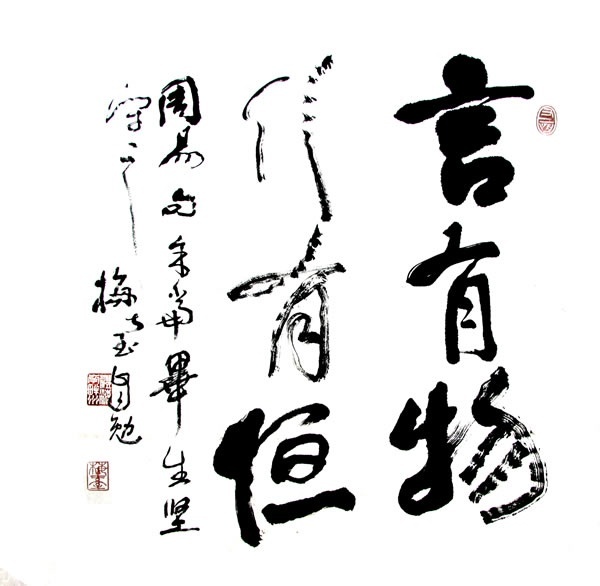 言有物
行有恒
周易句余當畢生坚
守之 梅 自勉